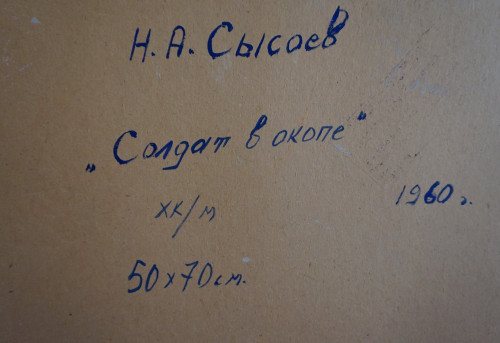 Н. А. Сысоев
„Солдат в окопе"
хк/м
1960 г.
50х70см.